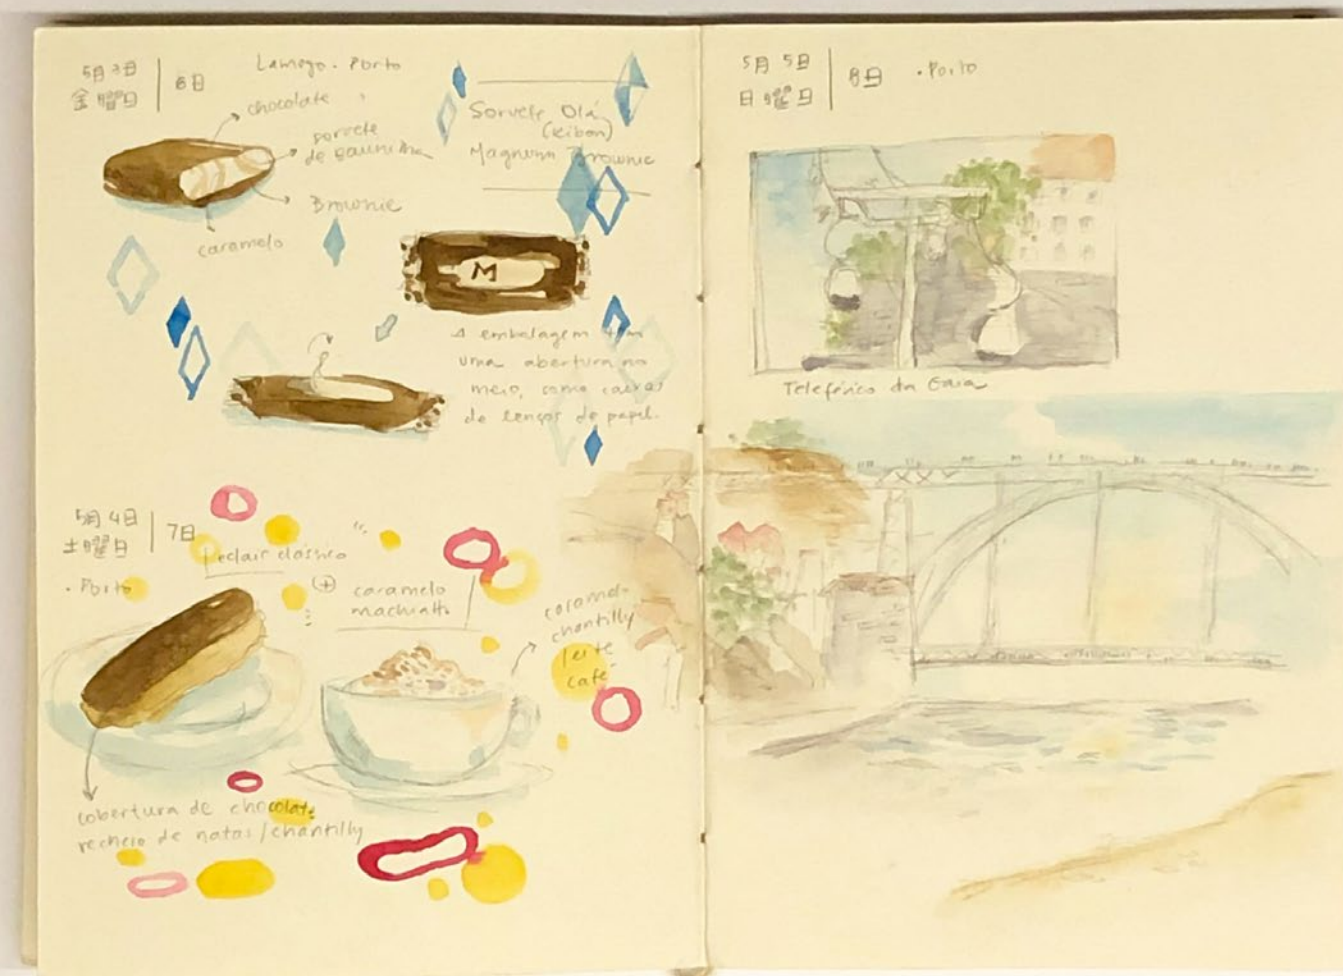 5月3日
金曜日
6日
Lamego - Porto
chocolate
sorvete
de baunilha
Brownie
caramelo
Sorvete Olá
(Kibon)
Magnum Brownie
M
A embalagem tem
uma abertura no
meio, como caixas
de lenços de papel.
5月4日
土曜日
7日
• Porto
eclair clássico
+
caramelo
machiatto
caramel-
chantilly
leite
café
cobertura de chocolate
recheio de natas/chantilly
5月5日
日曜日
8日
• Porto
Teleférico da Gaia